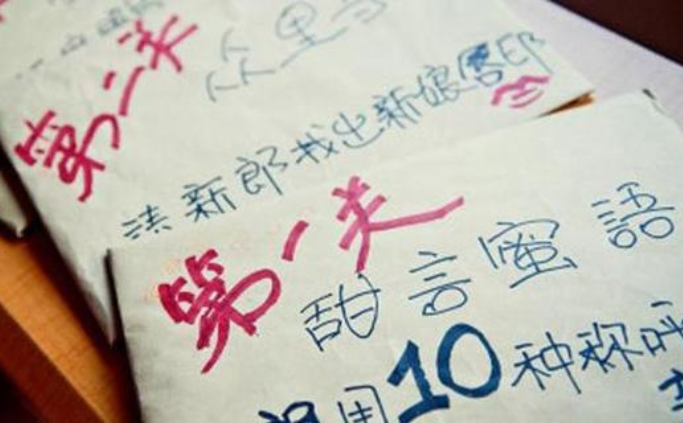 第二关
众里寻
请新郎找出新娘唇印
第一关
甜言蜜語
用10种称呼